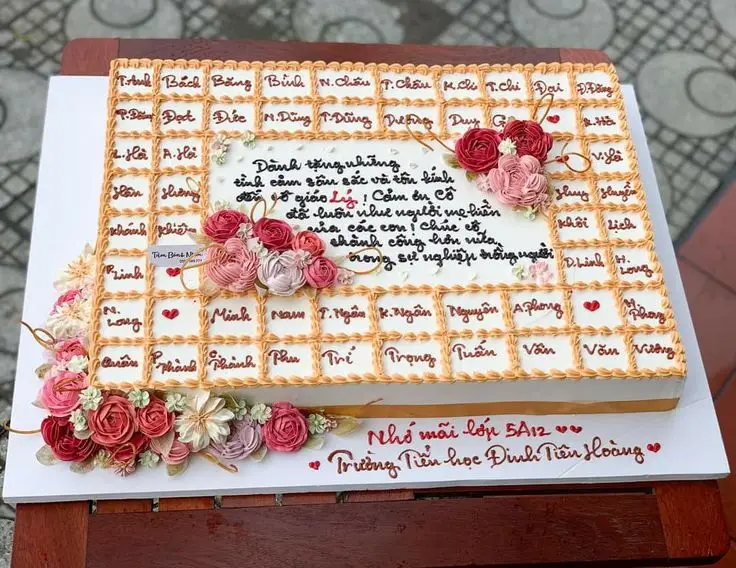 T.Anh Bách Băng Bình N.Châu T.Châu M.Chi T.Chi Đại Đ.Đăng
P.Đăng Đạt Đức N.Dũng T.Dũng Dương Duy K.Hà
L.Hà A.Hải V.Hà
Hân Hoàng Huy Huyền
Khánh Khiêm Khôi Lich
P.Linh D.Linh H.Long
N.Long Minh Nam T.Ngân K.Ngân Nguyên A.Phong H.Phong
Quân P.Thành C.Thành Thu Trí Trọng Tuấn Vân Văn Vương
Dành tặng những
tình cảm sâu sắc và tôn kính
đến cô giáo Lý! Cảm ơn Cô
đã luôn như người mẹ hiền
của các con! Chúc cô
thành công hơn nữa
trong sự nghiệp trồng người
Tiệm Bánh
Nhớ mãi lớp 5A12
Trường Tiểu học Đinh Tiên Hoàng